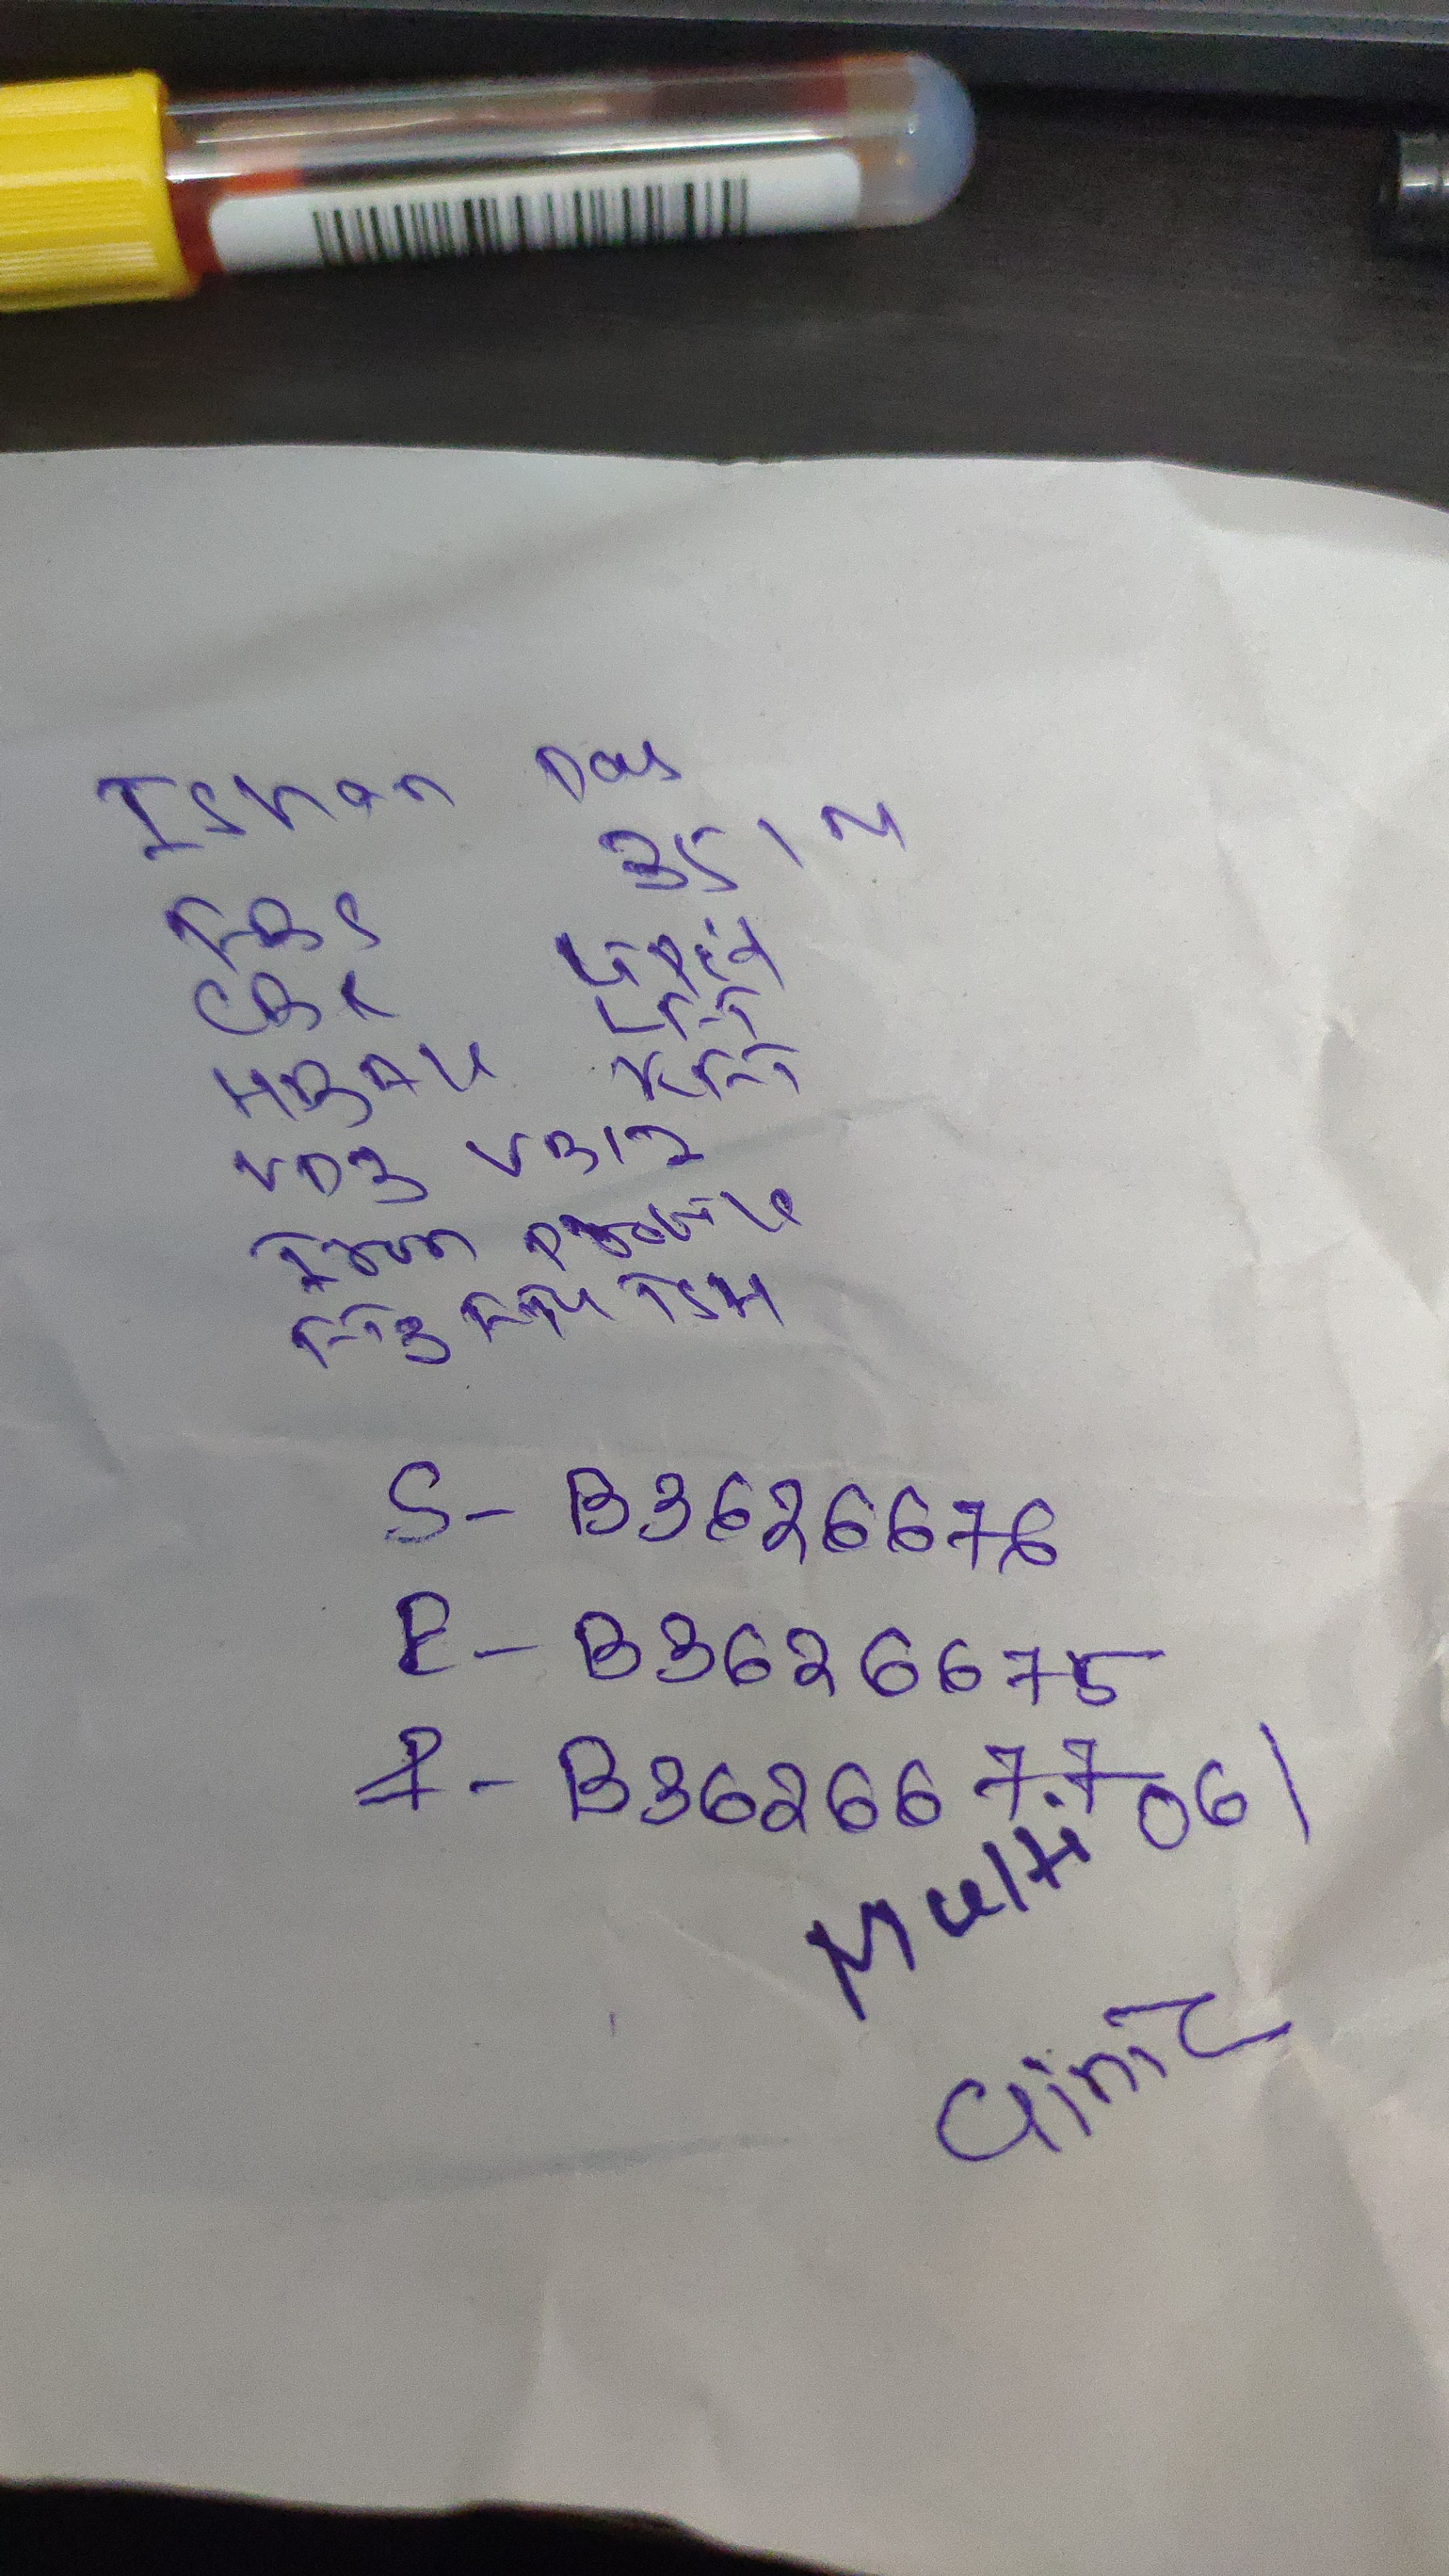 Ishan Das
35 / M
FBS Lipid
CBC LFT
HBA1C KFT
VD3 VB12
Iron Profile
FT3 FT4 TSH
S- B3626676
E- B3626675
F- B3626677
061
Multi
Clinic